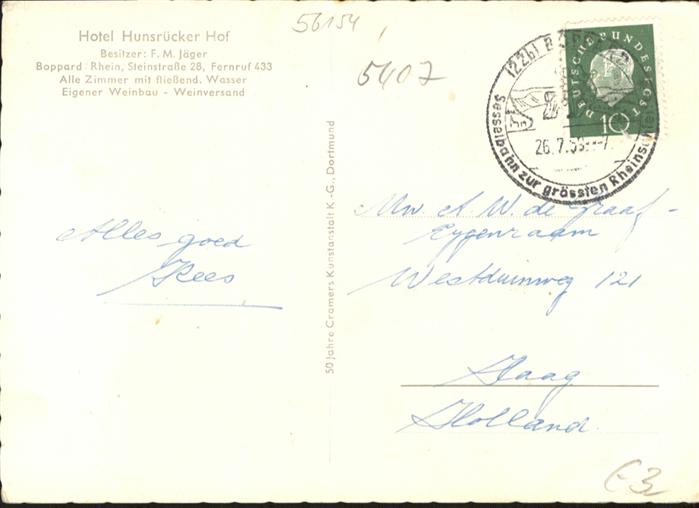 56154
5407
Hotel Hunsrücker Hof
Besitzer: F. M. Jäger
Boppard/Rhein, Steinstraße 28, Fernruf 433
Alle Zimmer mit fließend. Wasser
Eigener Weinbau - Weinversand
DEUTSCHE BUNDESPOST
10
(22b) BOPPARD
26.7.59
Sesselbahn zur grössten Rheinschleife
Alles goed
Kees
50 Jahre Cramers Kunstanstalt K.-G., Dortmund
Mw A. W. de Graaf-
Eygenraam
Westduinweg 121
Haag
Holland.
€3